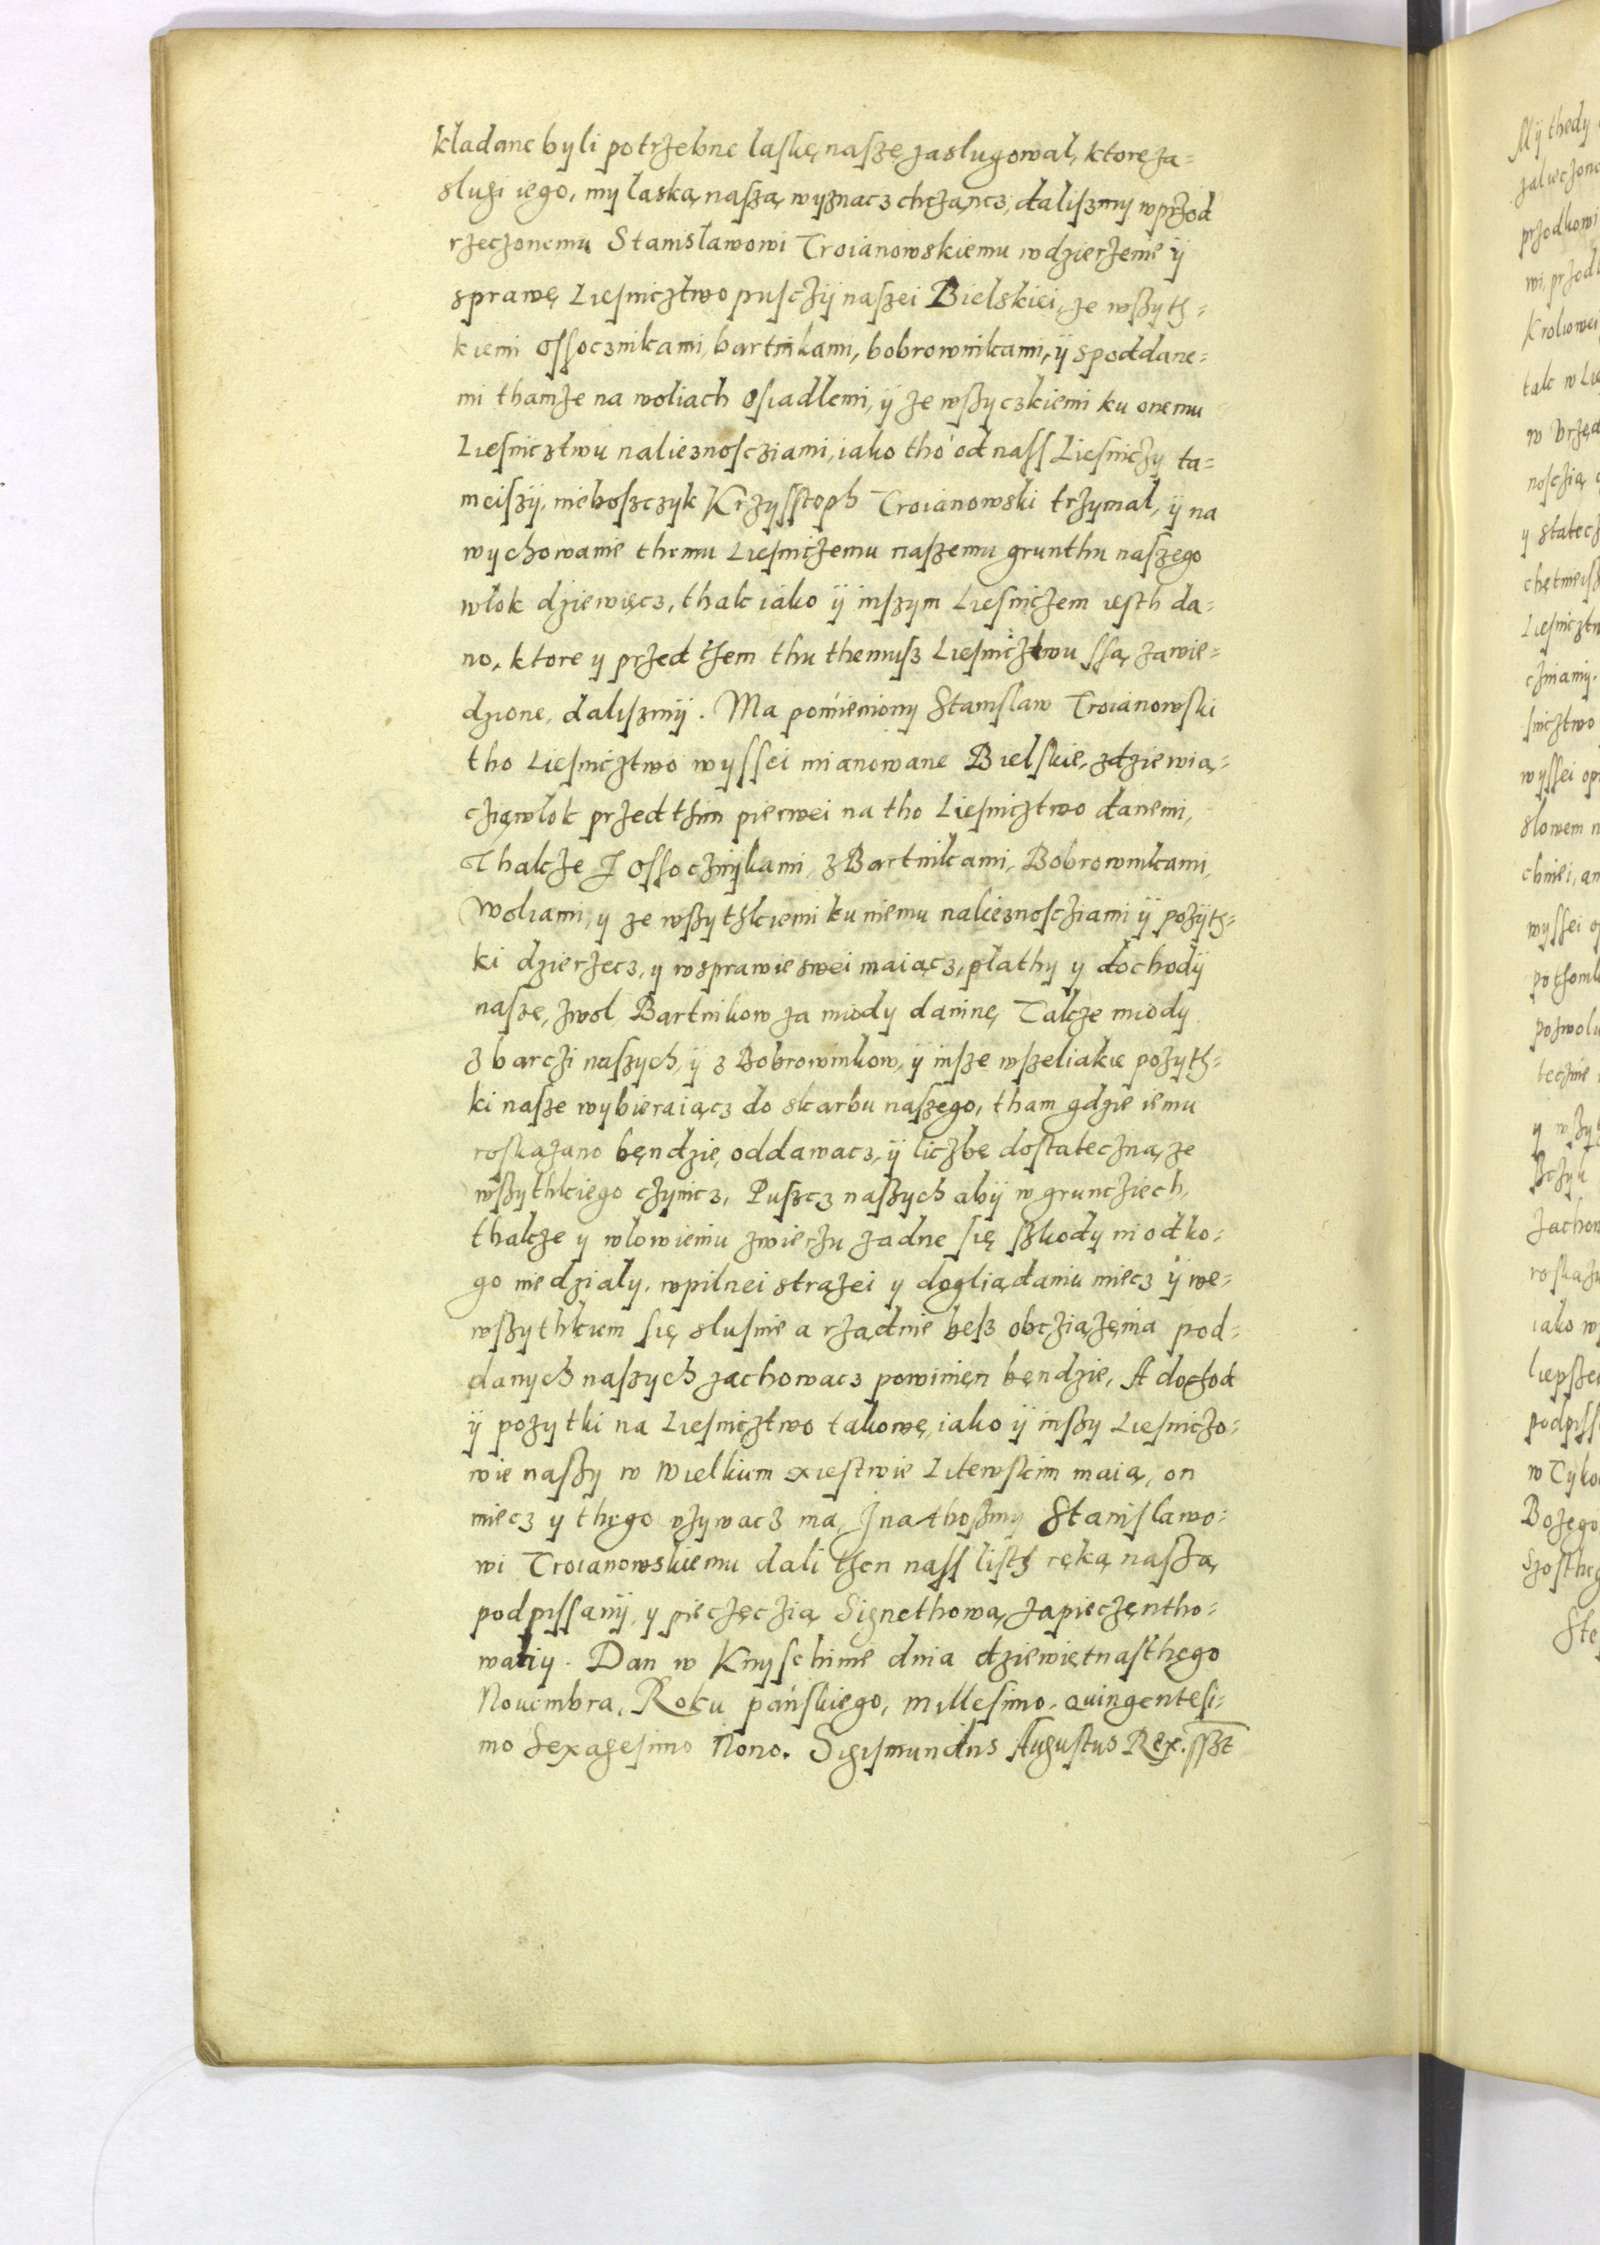 kladane byli potrzebne laskę naszę zaslugował, ktorę za=
slugi iego, my laską naszą wyznacz chcząncz, daliszmy wprzod
rzeczonemu Stanisławowi Troianowskiemu wdzierzenie ÿ
sprawę Liesnicztwo pusczÿ naszei Bielskiei, ze wszyth=
kiemi ossocznikami, bartnikami, bobrownikami, ÿ spoddane=
mi thamze na woliach osiadlemi, ÿ ze wszyczkiemi ku onemu
Liesnicztwu nalieznosciami, iako tho od nass Liesniczy ta=
meiszÿ, nieboszczyk Krzysstoph Troianowski trzymal, ÿ na
wychowanie themu Liesniczemu naszemu grunthu naszego
wlok dziewięcz, thak iako ÿ inszym Liesniczem iesth da=
no, ktore y przed them thu themusz Liesnicztwu ssą zawie=
dzone, daliszmÿ. Ma pomieniony Stanislaw Troianowski
tho Liesnicztwo wyssei mianowane Bielskie, zdziewią=
cziąwlok przed thim pierwei na tho Liesnicztwo danemi,
Thakze J ossocznÿkami, z Bartnikami, Bobrownikami,
Woliami, y ze wszythkiemi ku niemu nalieznosciami ÿ pozÿth=
ki dzierzecz, y wsprawie swei maiącz, plathy y dochodÿ
naszę, zwol Bartnikow za miody daninę Takze miody
z barczi naszych, ÿ z Bobrownikow, ÿ insze wszeliakie pozyth=
ki nasze wybieraiącz do skarbu naszego, tham gdzie iemu
roskazano bęndzie, oddawacz, ÿ liczbę dostateczną ze
wszythkiego czynicz, Puszcz naszych abÿ w grunciech,
thakze y wlowieniu zwierzu zadne się szkody ni odko=
go nie dzialy, wpilnei strazei y dogliądaniu miecz ÿ we=
wszythkiem się slusnie a rządnie besz obcziązęnia pod=
danych naszych zachowacz powinięn bęndzie, A dochod
ÿ pozytki na Liesnicztwo takowę, iako ÿ inszy Liesniczo=
wie naszy w Wielkiem xiestwie Litewskim maią, on
miecz y thego vzywacz ma, J na thoszmy Stanislawo=
wi Troianowskiemu dali then nass listh ręką naszą
podpissanÿ, y pieczęczią Signethową zapieczęntho=
waliy. Dan w Knyschinie dnia dziewiętnasthego
Nouembra, Roku pańskiego, millesimo quingentęsi=
mo Sexagesimo Nono. Sigismundus Augustus Rex. sszt